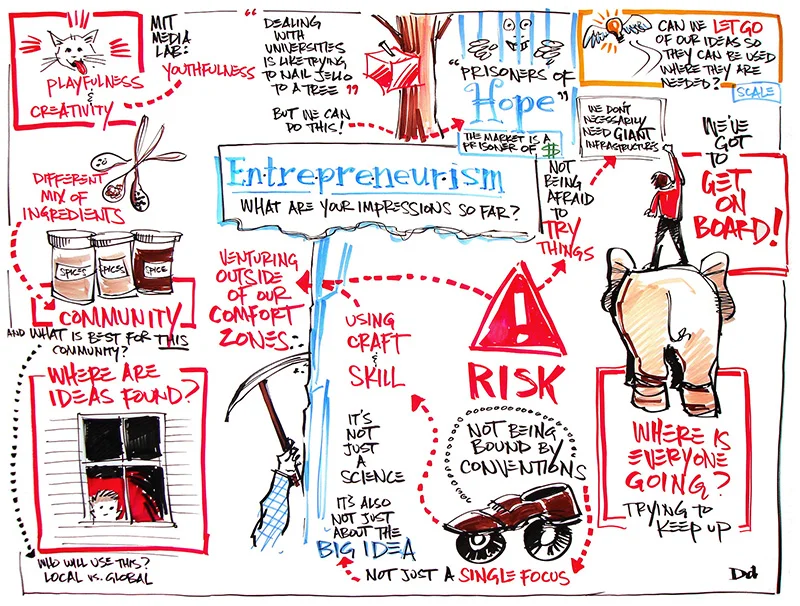 PLAYFULNESS
&
CREATIVITY
MIT
MEDIA
LAB:
YOUTHFULNESS
"DEALING
WITH
UNIVERSITIES
IS LIKE TRYING
TO NAIL JELLO
TO A TREE"
BUT WE CAN
DO THIS!
"PRISONERS OF
Hope"
THE MARKET IS A
PRISONER OF $
CAN WE LET GO
OF OUR IDEAS SO
THEY CAN BE USED
WHERE THEY ARE
NEEDED?
SCALE
WE DON'T
NECESSARILY
NEED GIANT
INFRASTRUCTURES
WE'VE
GOT
TO
GET
ON
BOARD!
DIFFERENT
MIX OF
INGREDIENTS
SPICES
SPICES
SPICE
COMMUNITY
AND WHAT IS BEST FOR THIS
COMMUNITY?
Entrepreneurism
WHAT ARE YOUR IMPRESSIONS SO FAR?
NOT
BEING
AFRAID
TO
TRY
THINGS
VENTURING
OUTSIDE
OF OUR
COMFORT
ZONES.
USING
CRAFT
&
SKILL
!
RISK
WHERE ARE
IDEAS FOUND?
WHO WILL USE THIS?
LOCAL vs. GLOBAL
IT'S
NOT
JUST
A
SCIENCE
IT'S ALSO
NOT JUST
ABOUT THE
BIG IDEA
NOT BEING
BOUND BY
CONVENTIONS
NOT JUST A SINGLE FOCUS
WHERE IS
EVERYONE
GOING?
TRYING TO
KEEP UP